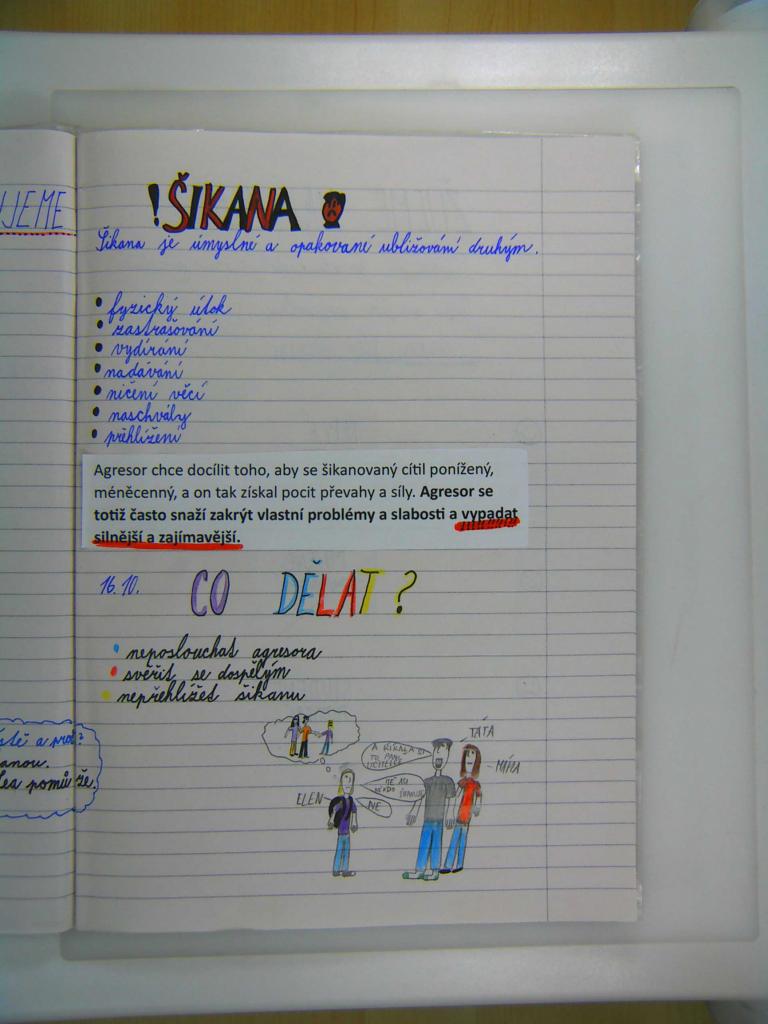 UJEME
!ŠIKANA
Šikana je úmyslné a opakované ubližování druhým.
• fyzický útok
• zastrašování
• vydírání
• nadávání
• ničení věcí
• naschvály
• přehlížení
Agresor chce docílit toho, aby se šikanovaný cítil ponížený,
méněcenný, a on tak získal pocit převahy a síly. Agresor se
totiž často snaží zakrýt vlastní problémy a slabosti a vypadat
silnější a zajímavější.
16.10.
CO DĚLAT?
• neposlouchat agresora
• svěřit se dospělým
• nepřehlížet šikanu
anou.
pomůže.
TÁTA
A ŘÍKALA SI
TO PANÍ
UČITELCE
MÁMA
ELEN
NE